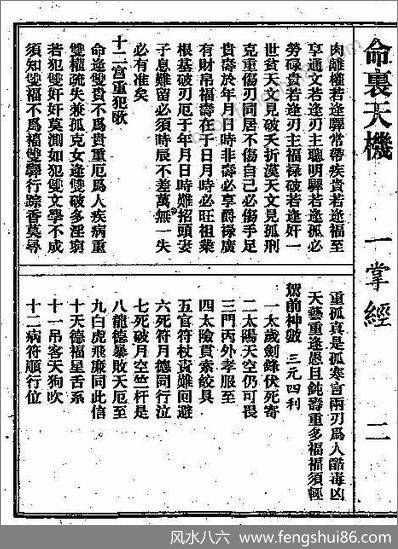 命裏天機 一掌經 二
肉離權若逢驛常帶疾貴若逢福至
享通文若逢刃主聰明驛若逢孤必
勞碌貴若逢刃主福祿破若逢奸一
世貧天文見破夭折漢天文見孤刑
克重傷刃同居不傷自己必傷手足
貴壽於年月日時非壽必享爵祿廣
有財帛福壽在于日月時必旺祖業
根基破刃厄于年月日時難招頭妻
子息難留必須時辰不差萬無一失
必有准矣
十二宮重犯歌
命逢雙貴不爲貴重厄爲人疾病重
雙權疏失兼孤克女逢雙破多淫窮
若犯雙奸奸莫測如犯雙文學不成
須知雙福不爲福雙驛行踪香莫尋
重孤真是孤寒言兩刃爲人酷毒凶
天藝重逢愚且鈍壽重多福福須輕
駕前神數 三元四利
一太歲劍鋒伏死寄
二太陽天空仍可畏
三門丙外孝服至
四太險貫索絞具
五官符杖責難迴避
六死符月德同行泣
七死破月空竺杆是
八龍德暴敗天厄至
九白虎飛廉同此信
十天德福星舌系
十一吊客天狗吠
十二病符順行位
风水八六 - www.fengshui86.com